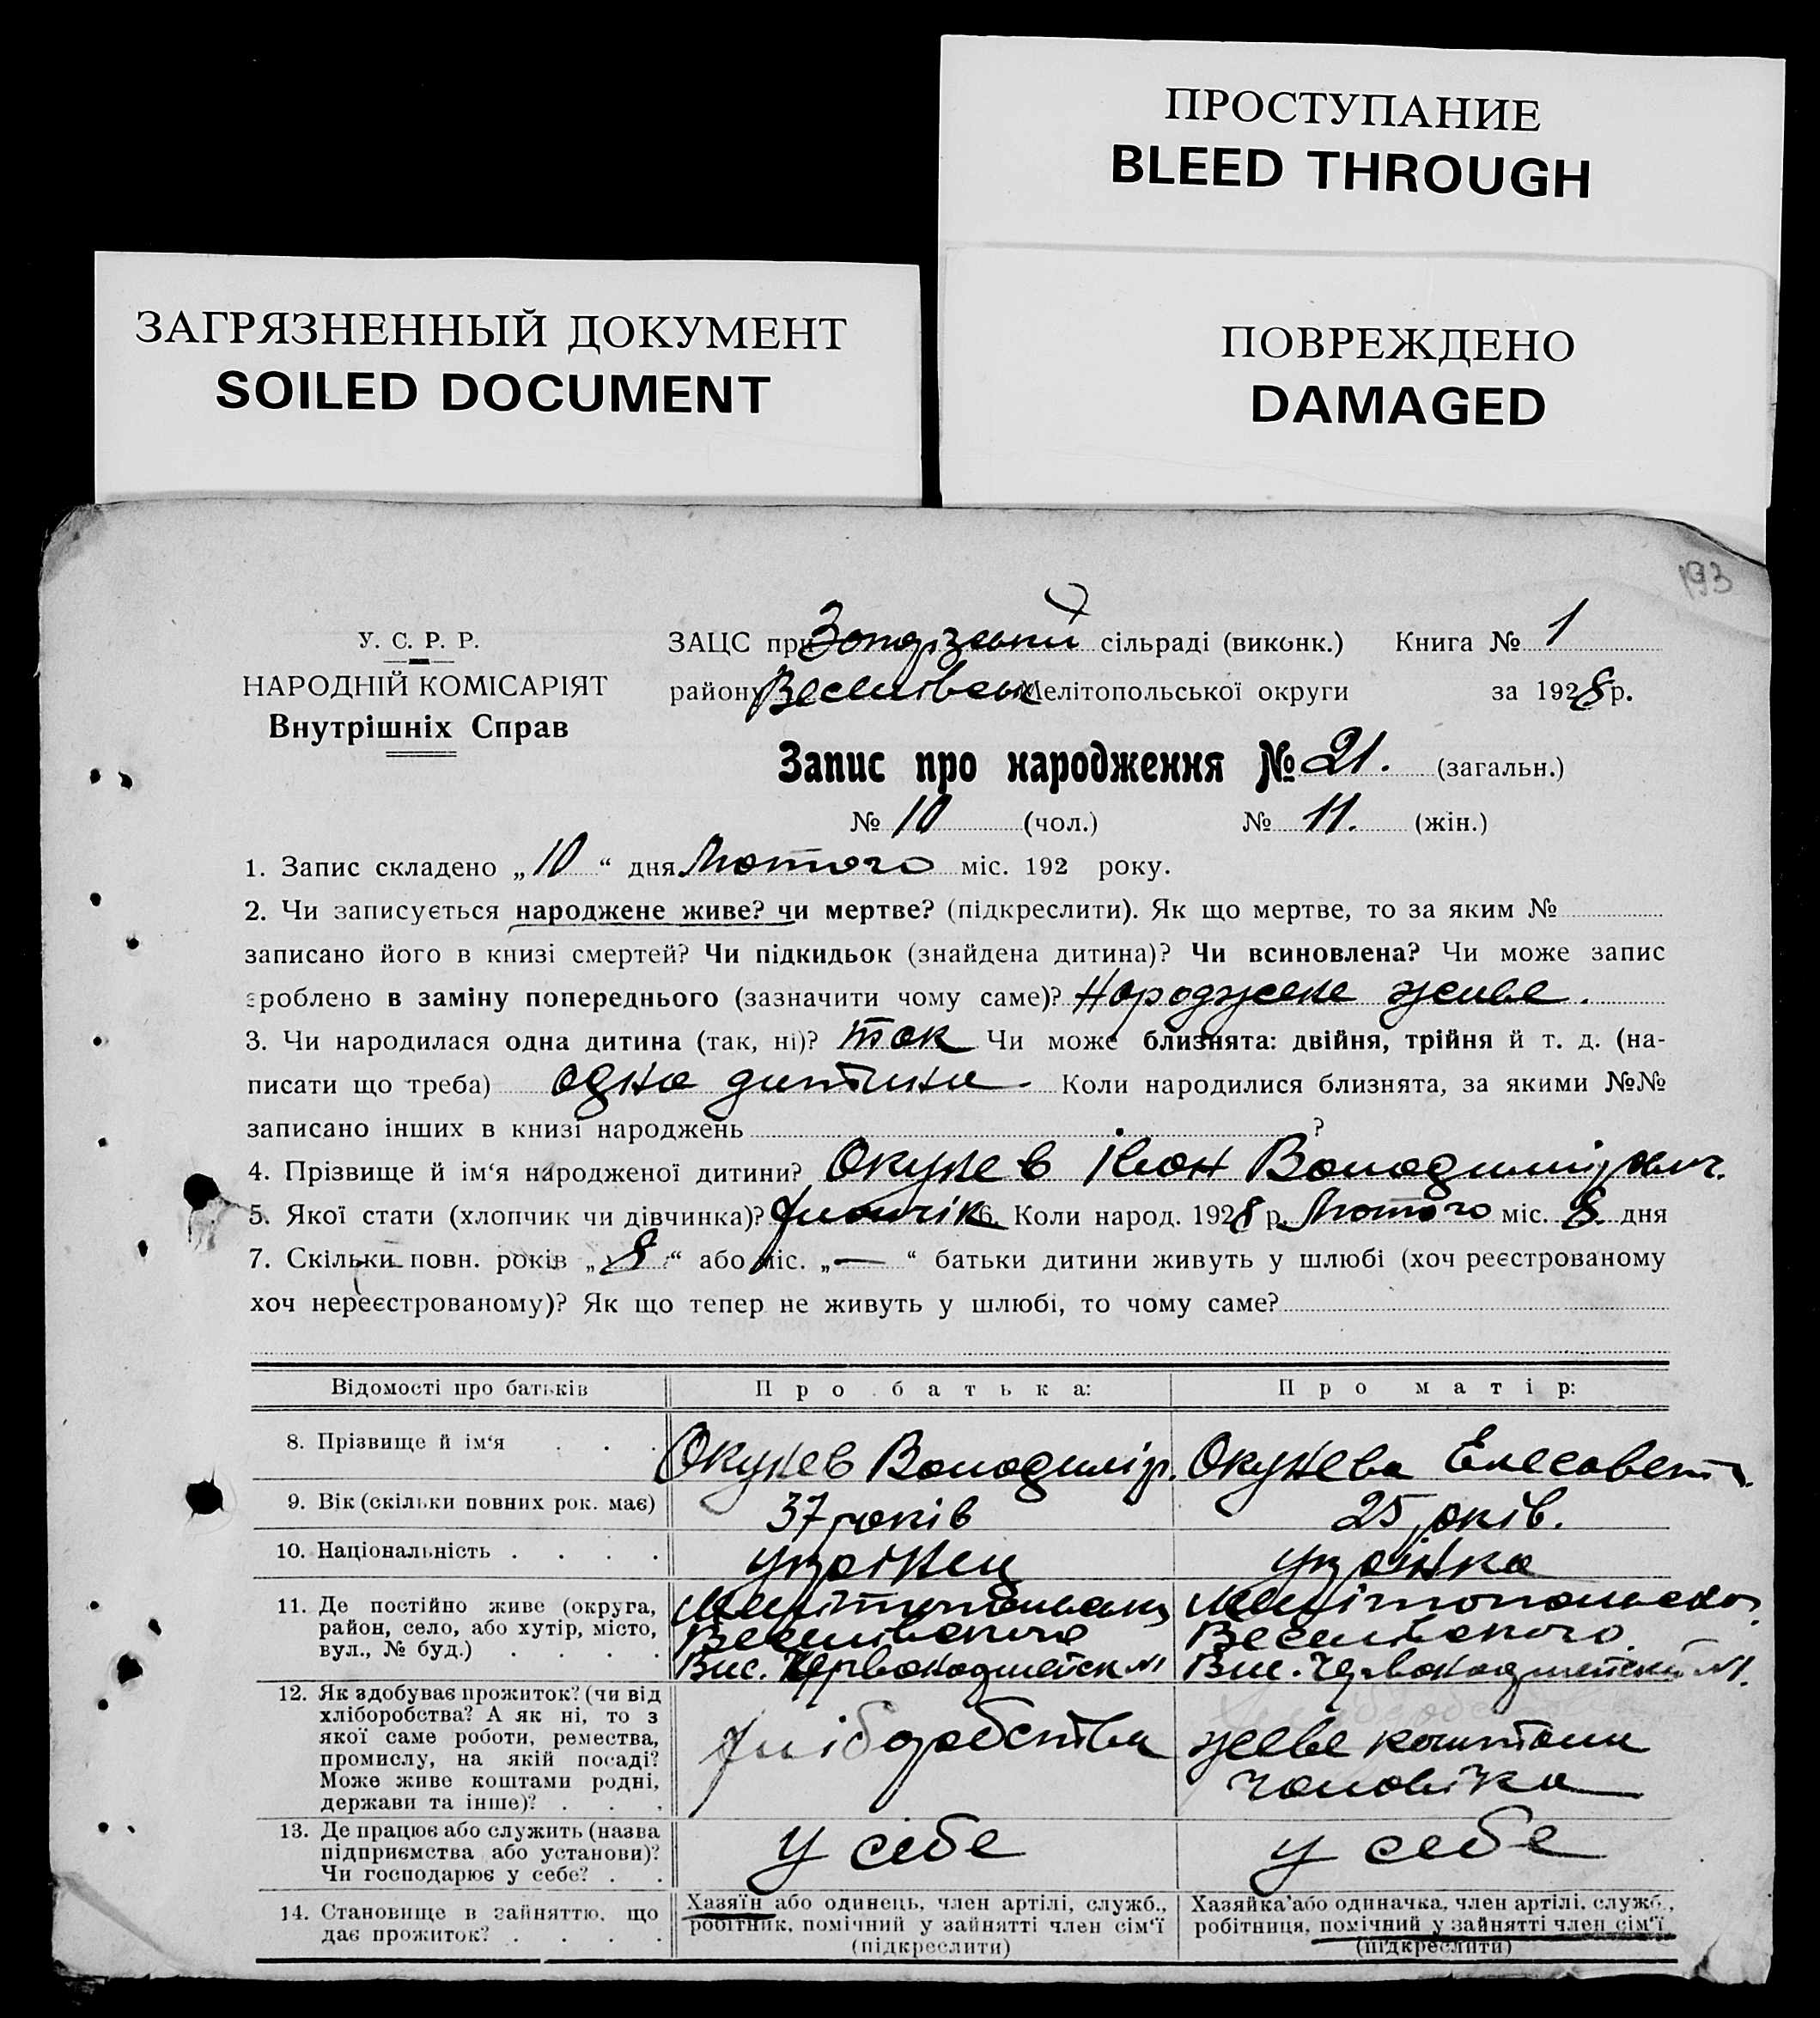 ПРОСТУПАНИЕ
BLEED THROUGH
ЗАГРЯЗНЕННЫЙ ДОКУМЕНТ
SOILED DOCUMENT
ПОВРЕЖДЕНО
DAMAGED
193
У. С. Р. Р.
НАРОДНІЙ КОМІСАРІЯТ
Внутрішніх Справ
ЗАЦС при сільраді (виконк.) Книга № 1
району Веселівськ Мелітопольської округи за 1928 р.
Запис про народження № 21. (загальн.)
№ 10 (чол.) № 11. (жін.)
1. Запис складено „10“ дня Лютого міс. 192 року.
2. Чи записується народжене живе? чи мертве? (підкреслити). Як що мертве, то за яким №
записано його в книзі смертей? Чи підкидьок (знайдена дитина)? Чи всиновлена? Чи може запис
зроблено в заміну попереднього (зазначити чому саме)? Народжене живе.
3. Чи народилася одна дитина (так, ні)? так Чи може близнята: двійня, трійня й т. д. (на-
писати що треба) одна дитина. Коли народилися близнята, за якими №№
записано інших в книзі народжень ?
4. Прізвище й ім‘я народженої дитини? Окунев Іван Володимірович.
5. Якої стати (хлопчик чи дівчинка)? 6. Коли народ. 1928 р. Лютого міс. 8. дня
7. Скільки повн. років „8“ або міс. „—“ батьки дитини живуть у шлюбі (хоч реєстрованому
хоч нереєстрованому)? Як що тепер не живуть у шлюбі, то чому саме?
Відомості про батьків Про батька: Про матір:
8. Прізвище й ім‘я . . . Окунев Володимір. Окунева Елесавета.
9. Вік (скільки повних рок. має) 37 років 25 років.
10. Національність . . . . українец українка
11. Де постійно живе (округа,
район, село, або хутір, місто,
вул., № буд.) . . . .
Веселівського
Вис. №1
Веселівського.
Вис. №1.
12. Як здобуває прожиток? (чи від
хліборобства? А як ні, то з
якої саме роботи, ремества,
промислу, на якій посаді?
Може живе коштами родні,
держави та інше)? . . .
хліборобства
живе коштами
чоловіка
13. Де працює або служить (назва
підприємства або установи)?
Чи господарює у себе? . .
у сібе
у себе
14. Становище в зайняттю, що
дає прожиток? . . . .
Хазяїн або одинець, член артілі, служб.,
робітник, помічний у зайнятті член сім‘ї
(підкреслити)
Хазяйка або одиначка, член артілі, служб.,
робітниця, помічний у зайнятті член сім‘ї
(підкреслити)